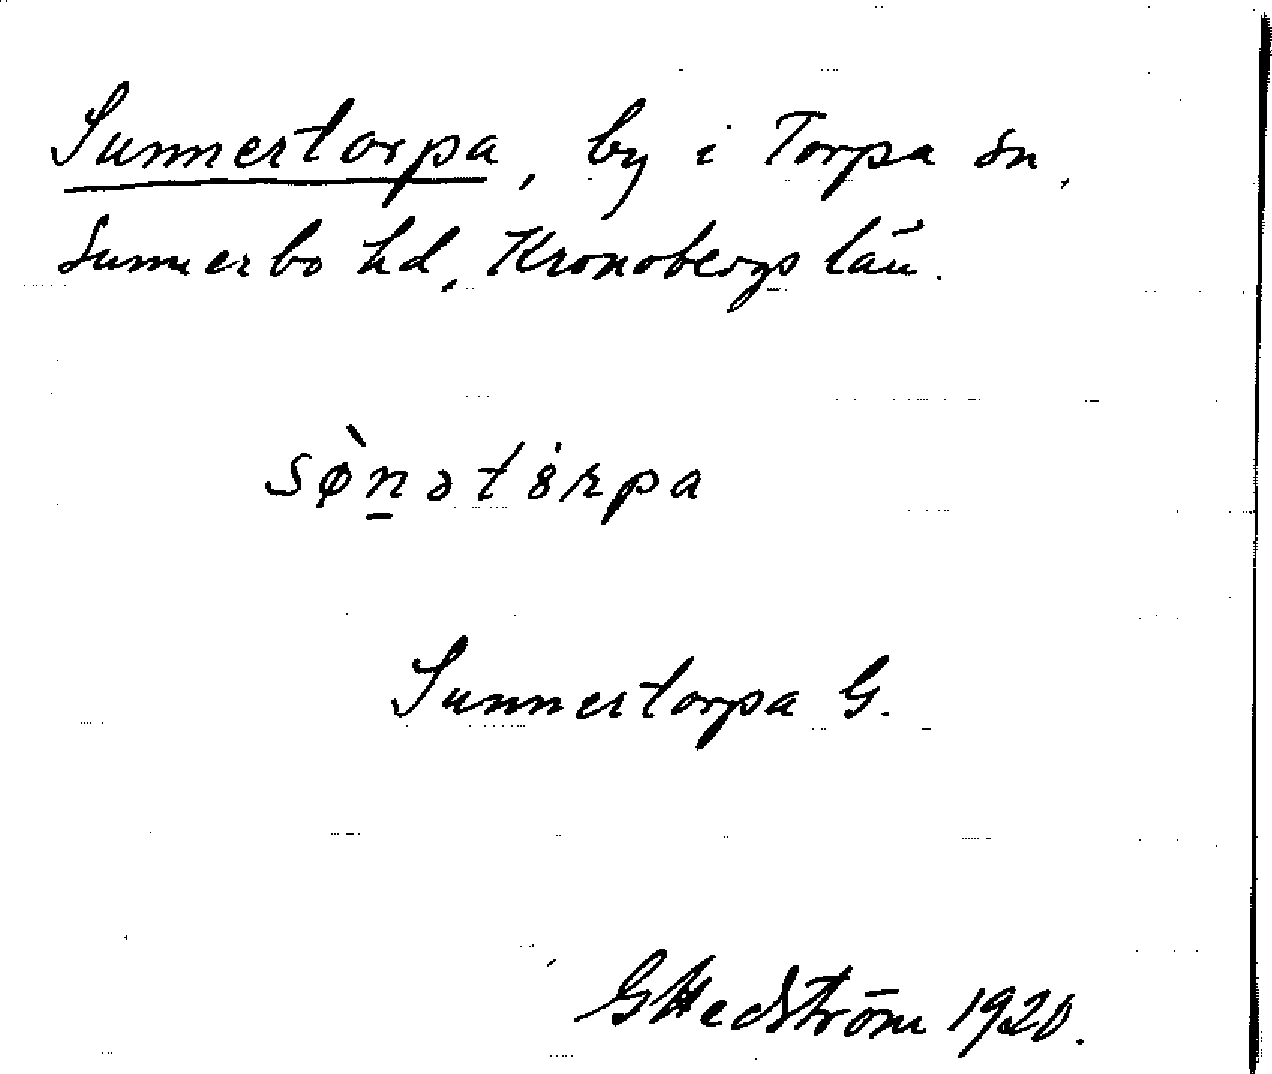 Sunnertorpa, by i Torpa sn,
Sunnerbo hd, Kronobergs län.
sø̀n̲ətȯrpa
Sunnertorpa G.
GHedström 1920.